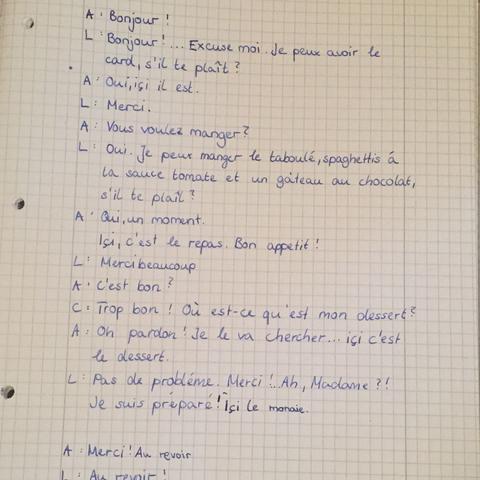 A: Bonjour !
L: Bonjour!... Excuse moi. Je peux avoir le
card, s'il te plaît?
A: Oui, içi il est.
L: Merci.
A: Vous voulez manger?
L: Oui. Je peux manger le taboulé, spaghettis á
la sauce tomate et un gâteau au chocolat,
s'il te plaît?
A: Oui, un moment.
Içi, c'est le repas. Bon appetit!
L: Merci beaucoup
A: C'est bon?
C: Trop bon! Où est-ce qu'est mon dessert?
A: Oh pardon! Je le va chercher... içi c'est
le dessert.
L: Pas de probléme. Merci!.. Ah, Madame?!
Je suis préparé! Içi le monaie.
A: Merci! Au revoir
L: Au revoir!